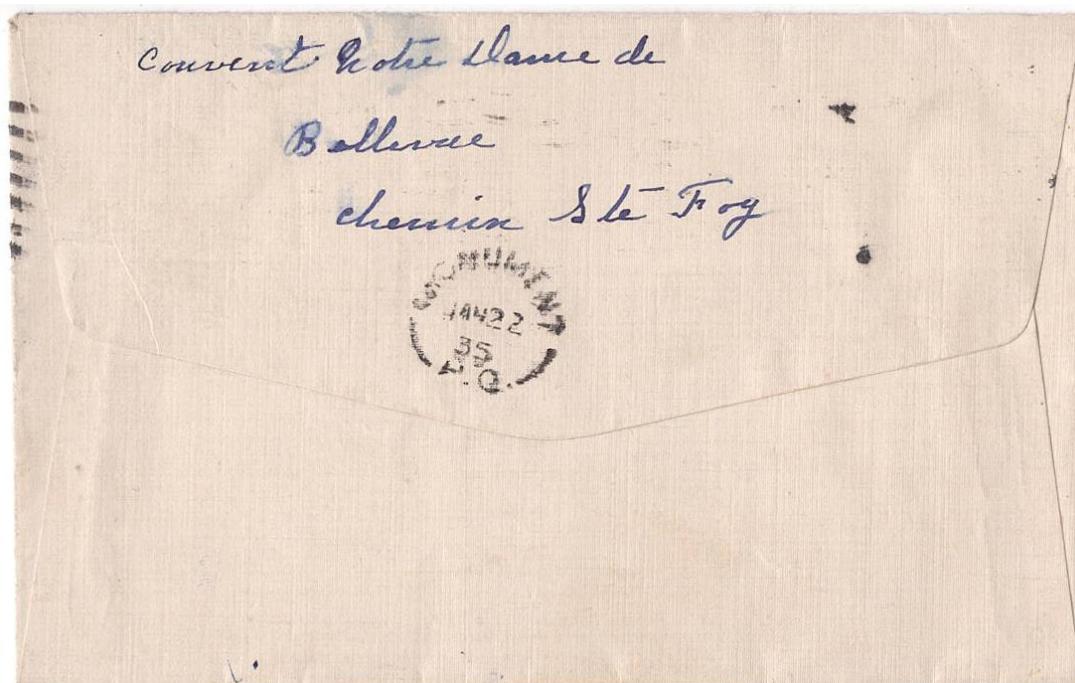 Couvent Notre Dame de
Bellevue
chemin Ste Foy
MONUMENT
JAN 22
35
P.Q.